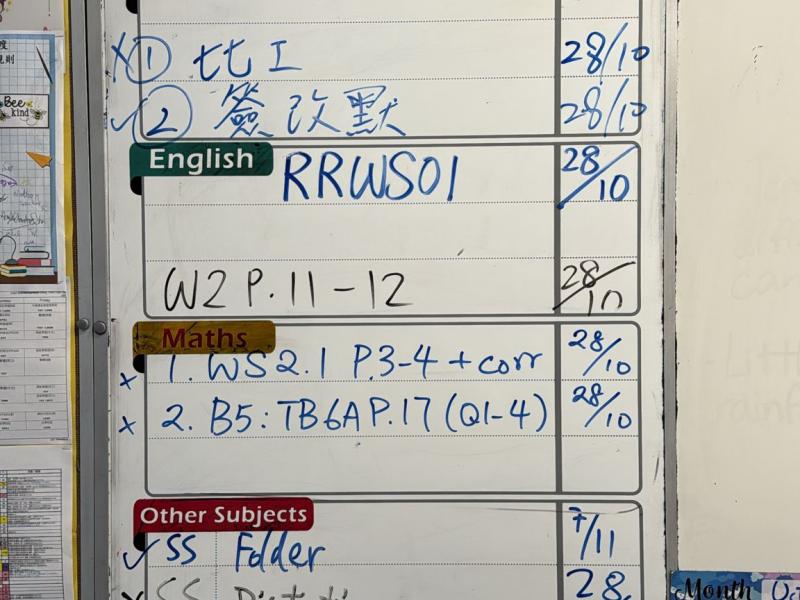 x ① 比工 28/10
✓ ② 簽改默 28/10
English RRWS01 28/10
W2 P.11-12 28/10
Maths
x 1. WS2.1 P.3-4 + corr 28/10
x 2. B5: TB6A P.17 (Q1-4) 28/10
Other Subjects
✓ SS Folder 7/11
SS 28
Bee kind
Month